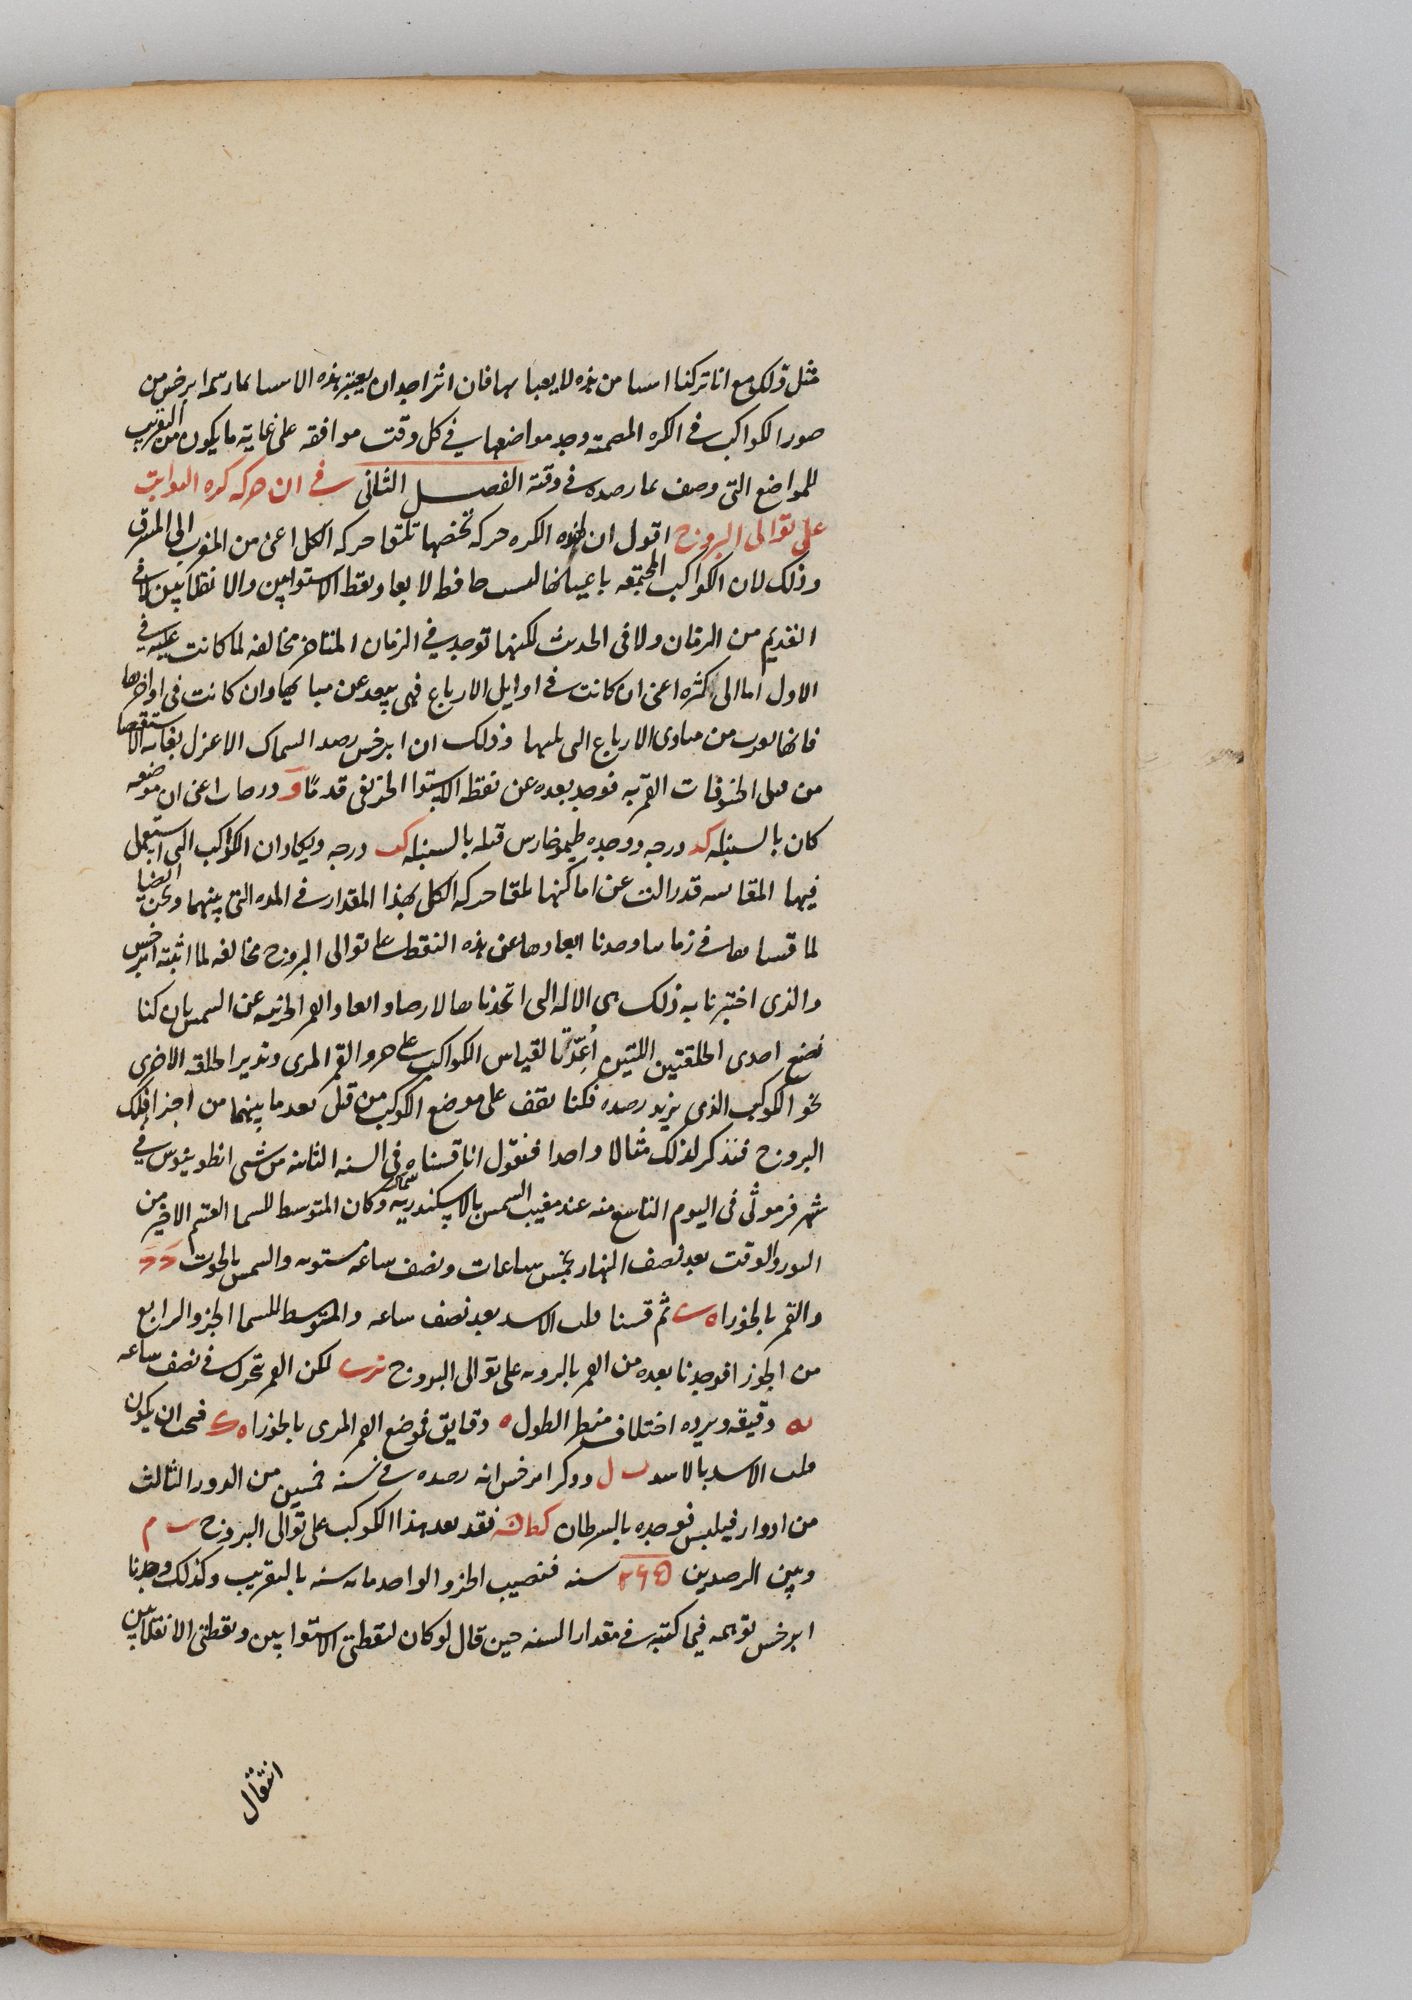 مثل ذلك مع انا تركنا اشيا من هذه لا يعبا بها فان اثر احد ان يعتبر هذه الاشيا بما رسمه ابرخس من
صور الكواكب في الكره المصمته وجد مواضعها في كل وقت موافقه على غاية ما يكون من التقريب
للمواضع التي وصف بما رصده في وقته الفصل الثانى في ان حركه كره الثوابت
على توالى البروج اقول ان لهذه الكره حركه تخصها تلقا حركه الكل اعنى من المغرب الى المشرق
وذلك لان الكواكب المجتمعه باعيانها ليست حافظه لابعاد نقط الاستوايين والانقلابين لا في
القديم من الزمان ولا في الحديث لكنها توجد في الزمان المتاخر مخالفه لما كانت عليه في
الاول اما الى كثره اعنى ان كانت في اوايل الارباع فهى يبعد عن مباديها وان كانت في اواخرها
فانها تقرب من مبادى الارباع التى تليها وذلك ان ابرخس رصد السماك الاعزل بغايه الاستقصا
من قبل الخسوفات القمريه فوجد بعده عن نقطه الاستوا الخريفى قدما و درجات اعنى ان موضعه
كان بالسنبله كد درجه ووجده طيموخارس قبله بالسنبله كب درجه ويكاد ان الكواكب التى استعمل
فيها المقايسه قد زالت عن اماكنها تلقا حركه الكل بهذا المقدار في المده التى بينهما ونحن ايضا
لما قسناها في زماننا وجدنا ابعادها عن هذه النقط على توالى البروج مخالفه لما اثبته ابرخس
والذى اختبرنا به ذلك هى الاله التى اتخذناها لارصاد ابعاد القمر الجزييه عن الشمس بان كنا
نضع احدى الحلقتين اللتين اُعِدّتا لقياس الكواكب على جرو القمر المرى وندير الحلقه الاخرى
نحو الكوكب الذى نريد رصده فكنا نقف على موضع الكوكب من قبل بعد ما بينهما من اجزا فلك
البروج فنذكر لذلك مثالا واحدا فنقول انا قسنا في السنه الثانيه من سنى انطونينوس في
شهر فرموثى فى اليوم التاسع منه عند مغيب الشمس بالاسكندريه وكان المتوسط للسما القسم الاخير من
الثور والوقت بعد نصف النهار بخمس ساعات ونصف ساعه مستويه والشمس بالحوت
والقمر بالجوزا ثم قسنا قلب الاسد بعد نصف ساعه والمتوسط للسما الجزو الرابع
من الجوزا فوجدنا بعده من القمر بالرويه على توالى البروج لكن القمر تحرك في نصف ساعه
يه دقيقه ويرده اختلاف منظر الطول ه دقايق فموضع القمر المرى بالجوزا فيجب ان يكون
قلب الاسد بالاسد ب ل وذكر ابرخس انه رصده في سنه خمسين من الدور الثالث
من ادوار فيلبس فوجده بالسرطان كط نه فقد بعد هذا الكوكب على توالى البروج ب م
وبين الرصدين ٢٦٥ سنه فنصيب الجزو الواحد مايه سنه بالتقريب وكذلك وجدنا
ابرخس توهمه فيما كتبه في مقدار السنه حين قال لو كان لنقطتى الاستوايين ونقطتى الانقلابين
انتقال